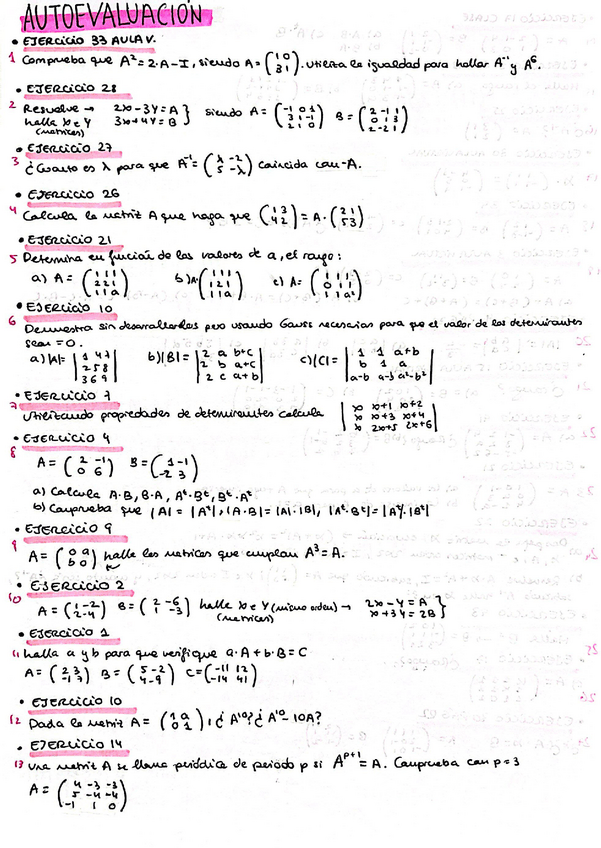 AUTOEVALUACIÓN
• EJERCICIO 33 AULA V.
1 Comprueba que A² = 2·A-I, siendo A = (1 0 / 3 1). Utiliza la igualdad para hallar A⁻¹ y A⁶.
• EJERCICIO 28
2 Resuelve → 2x-3Y=A } siendo A = (-1 0 1 / 3 1 -1 / 2 1 0) B = (2 -1 1 / 0 1 3 / 2 -2 1)
halla x e Y 3x+4Y=B
(matrices)
• EJERCICIO 27
3 ¿Cuanto es λ para que A⁻¹ = (λ -2 / 5 -λ) coincida con -A.
• EJERCICIO 26
4 Calcula la matriz A que haga que (1 3 / 4 2) = A·(2 1 / 5 3)
• EJERCICIO 21
5 Determina en función de los valores de a, el rango:
a) A = (1 1 1 / 2 2 1 / 1 1 a) b) A = (1 1 1 / 1 2 1 / 1 1 a) c) A = (1 1 1 / 0 1 1 / 1 1 a²)
• EJERCICIO 10
6 Demuestra sin desarrollarlos pero usando Gauss necesarias para que el valor de los determinantes
sean = 0.
a) |A| = |1 4 7 / 2 5 8 / 3 6 9| b) |B| = |2 a b+c / 2 b a+c / 2 c a+b| c) |C| = |1 1 a+b / b 1 a / a-b a-b a²-b²|
• EJERCICIO 7
7 Utilizando propiedades de determinantes calcula |x x+1 x+2 / x x+3 x+4 / x 2x+5 2x+6|
• EJERCICIO 4
8
A = (2 -1 / 0 6) B = (1 -1 / -2 3)
a) Calcula A·B, B·A, Aᵗ·Bᵗ, Bᵗ·Aᵗ
b) Comprueba que |A| = |Aᵗ|, |A·B| = |A|·|B|, |Aᵗ·Bᵗ| = |Aᵗ|·|Bᵗ|
• EJERCICIO 9
9 A = (0 a / b 0) halle las matrices que cumplan A³=A.
• EJERCICIO 2
10 A = (1 -2 / 2 -4) B = (2 -6 / -3) halle x e Y (mismo orden) → 2x-Y=A }
(matrices) x+3Y=2B
• EJERCICIO 1
11 halla a y b para que verifique a·A+b·B=C
A = (2 3 / -1 7) B = (5 -2 / 4 -9) C = (-11 12 / -14 41)
• EJERCICIO 10
12 Dada la matriz A = (1 a / 0 1), ¿A¹⁰? ¿A¹⁰-10A?
• EJERCICIO 14
13 Una matriz A se llama periódica de periodo p si Aᵖ⁺¹=A. Comprueba con p=3
A = (4 -3 -3 / 5 -4 -4 / -1 1 0)